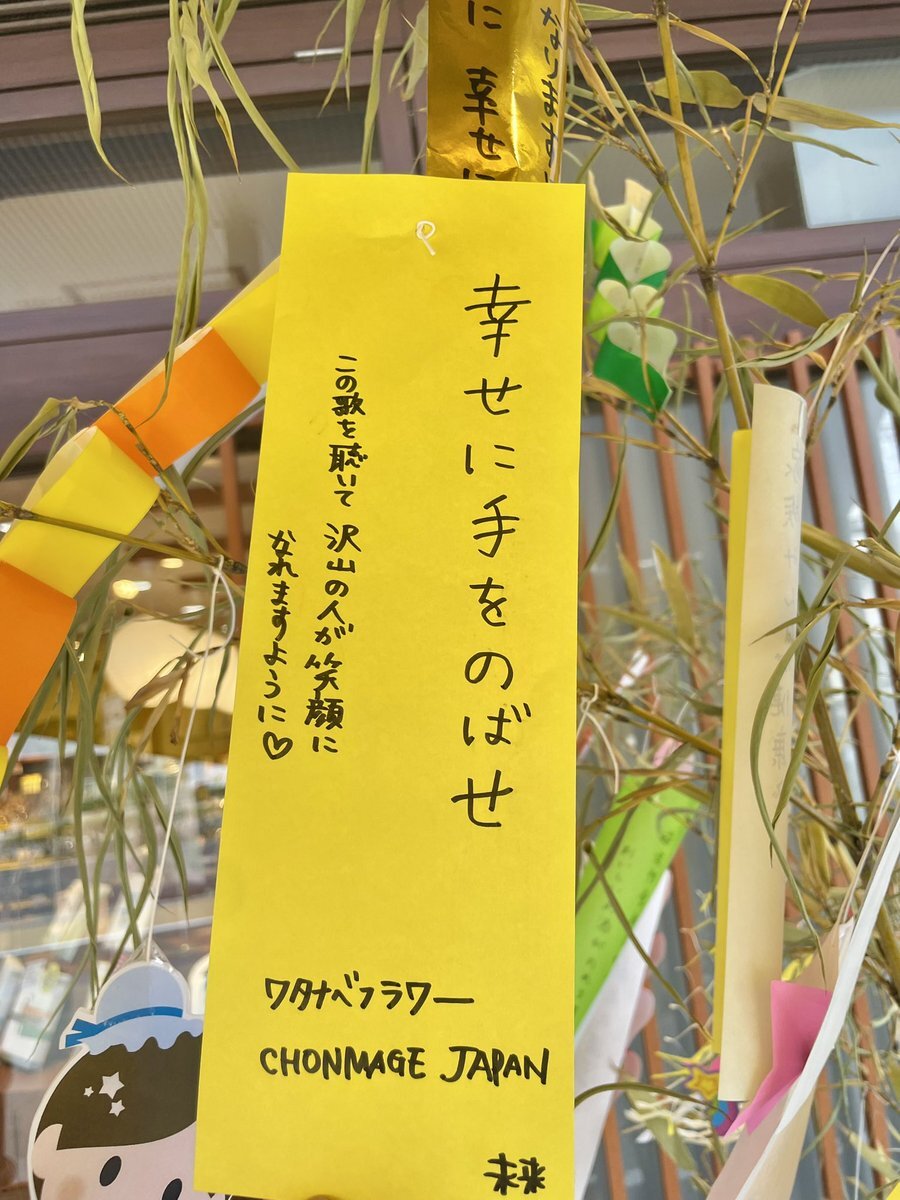 に 幸せに
幸せに手をのばせ
この歌を聴いて 沢山の人が笑顔に
なれますように♡
ワタナベフラワー
CHONMAGE JAPAN
未来